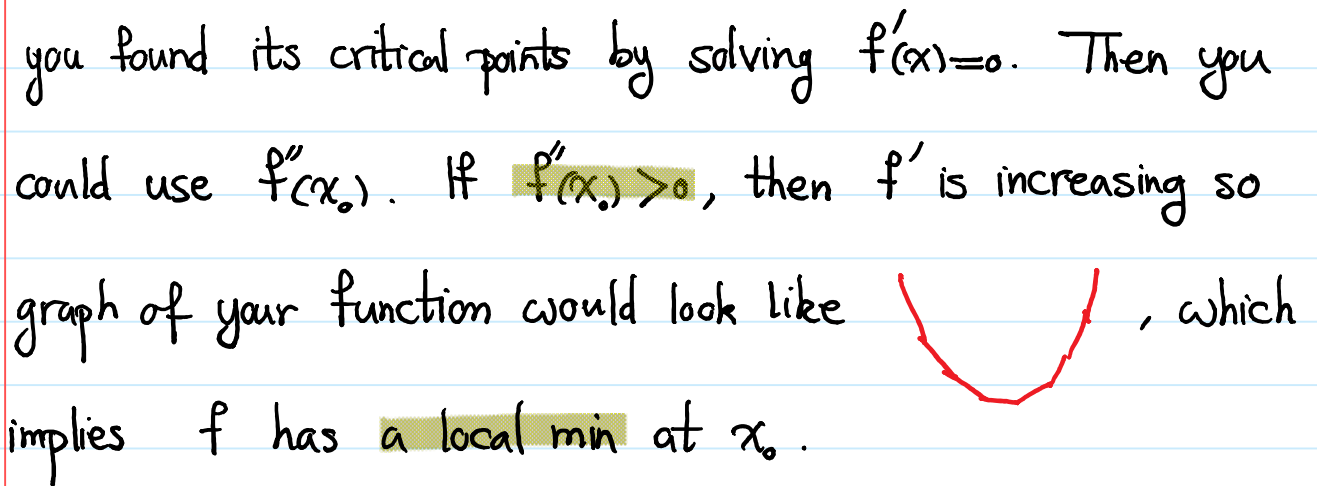 you found its critical points by solving f′(x)=0. Then you
could use f″(x₀). If f″(x₀)>0, then f′ is increasing so
graph of your function would look like , which
implies f has a local min at x₀.